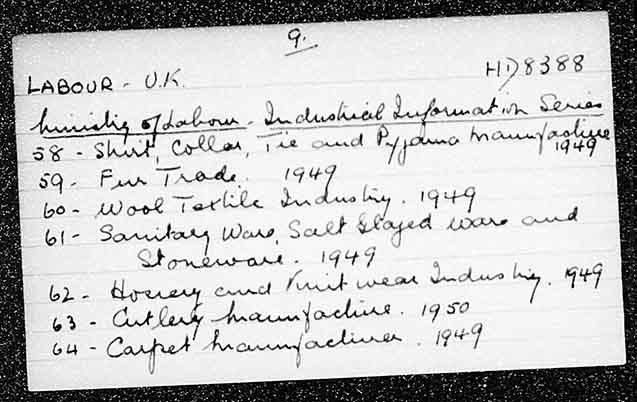 9.
LABOUR - U.K. HD8388
Ministry of Labour - Industrial Information Series
58 - Shirt, Collar, Tie and Pyjama Manufacture 1949
59 - Fur Trade. 1949
60 - Wool Textile Industry. 1949
61 - Sanitary Ware, Salt Glazed ware and
Stoneware. 1949
62 - Hosiery and Knitwear Industry. 1949
63 - Cutlery Manufacture. 1950
64 - Carpet Manufacture. 1949